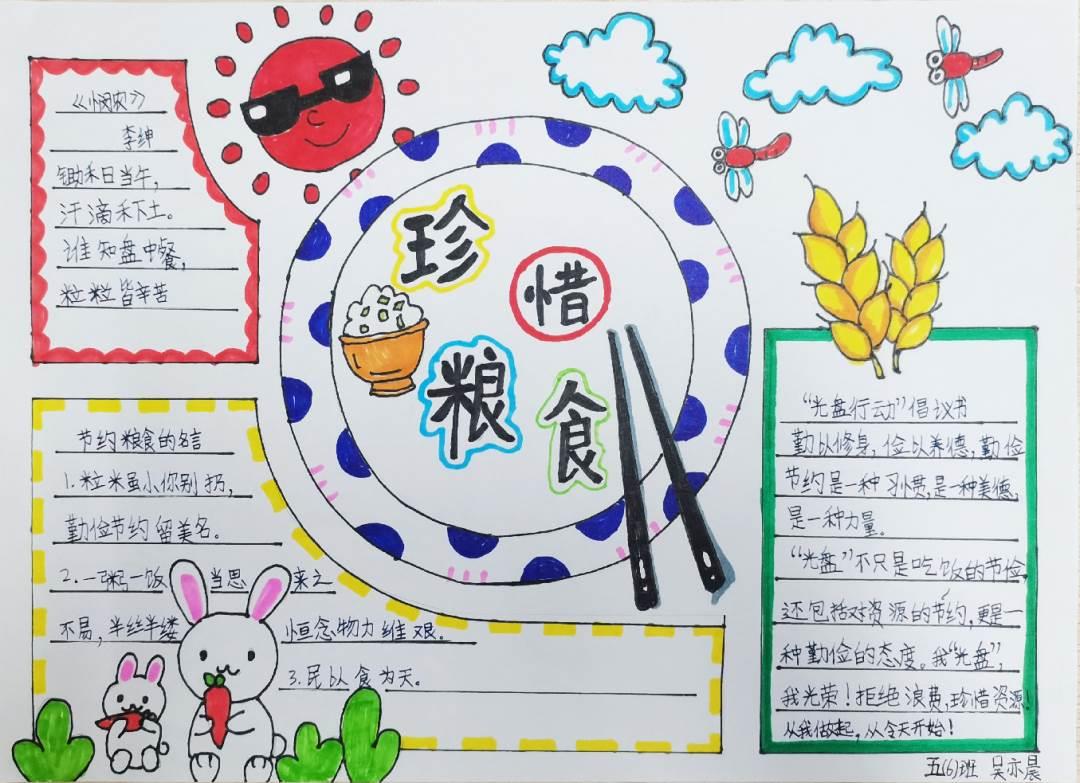 《悯农》
李绅
锄禾日当午,
汗滴禾下土。
谁知盘中餐,
粒粒皆辛苦
珍
惜
粮
食
节约粮食的名言
1.粒米虽小你别扔,
勤俭节约留美名。
2.一粥一饭 当思 来之
不易,半丝半缕 恒念物力维艰。
3.民以食为天。
“光盘行动”倡议书
勤以修身,俭以养德,勤俭
节约是一种习惯,是一种美德,
是一种力量。
“光盘”不只是吃饭的节俭,
还包括对资源的节约,更是一
种勤俭的态度。我“光盘”,
我光荣!拒绝浪费,珍惜资源!
从我做起,从今天开始!
五(6)班 吴亦晨